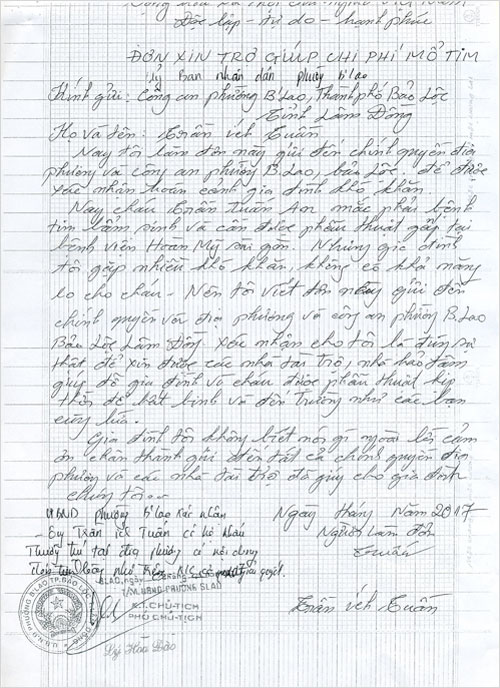 Độc lập - tự do - hạnh phúc
ĐƠN XIN TRỢ GIÚP CHI PHÍ MỔ TIM
Ủy Ban nhân dân phường B'lao
Kính gửi: Công an phường B'Lao, Thành phố Bảo Lộc
Tỉnh Lâm Đồng
Họ và tên: Trần ích Tuấn
Nay tôi làm đơn này gửi đến chính quyền địa
phương và công an phường B.Lao, bảo Lộc. để được
xác nhận hoàn cảnh gia đình khó khăn.
Nay cháu Trần Tuấn An mắc phải bệnh
tim bẩm sinh và cần được phẫu thuật gấp tại
bệnh viện Hoàn Mỹ sài gòn. Nhưng gia đình
tôi gặp nhiều khó khăn, không có khả năng
lo cho cháu. Nên tôi viết đơn này gửi đến
chính quyền và địa phương và công an phường B.Lao
Bảo Lộc Lâm Đồng xác nhận cho tôi là đúng sự
thật để xin được các nhà tài trợ, nhà hảo tâm
giúp đỡ gia đình và cháu được phẫu thuật kịp
thời để hết bệnh và đến trường như các bạn
cùng lứa.
Gia đình tôi không biết nói gì ngoài lời cảm
ơn chân thành gửi đến tất cả chính quyền địa
phương và các nhà tài trợ đã giúp cho gia đình
chúng tôi...
UBND phường B'lao xác nhận
Ngày tháng Năm 2017
- Ông Trần ích Tuấn có hộ khẩu
Người làm đơn
Thường trú tại địa phương có nội dung
Tuấn
BLAO, ngày tháng
T/M.UBND PHƯỜNG BLAO
K.T.CHỦ-TỊCH
PHÓ CHỦ-TỊCH
Trần ích Tuấn
Lý Hoa Đào